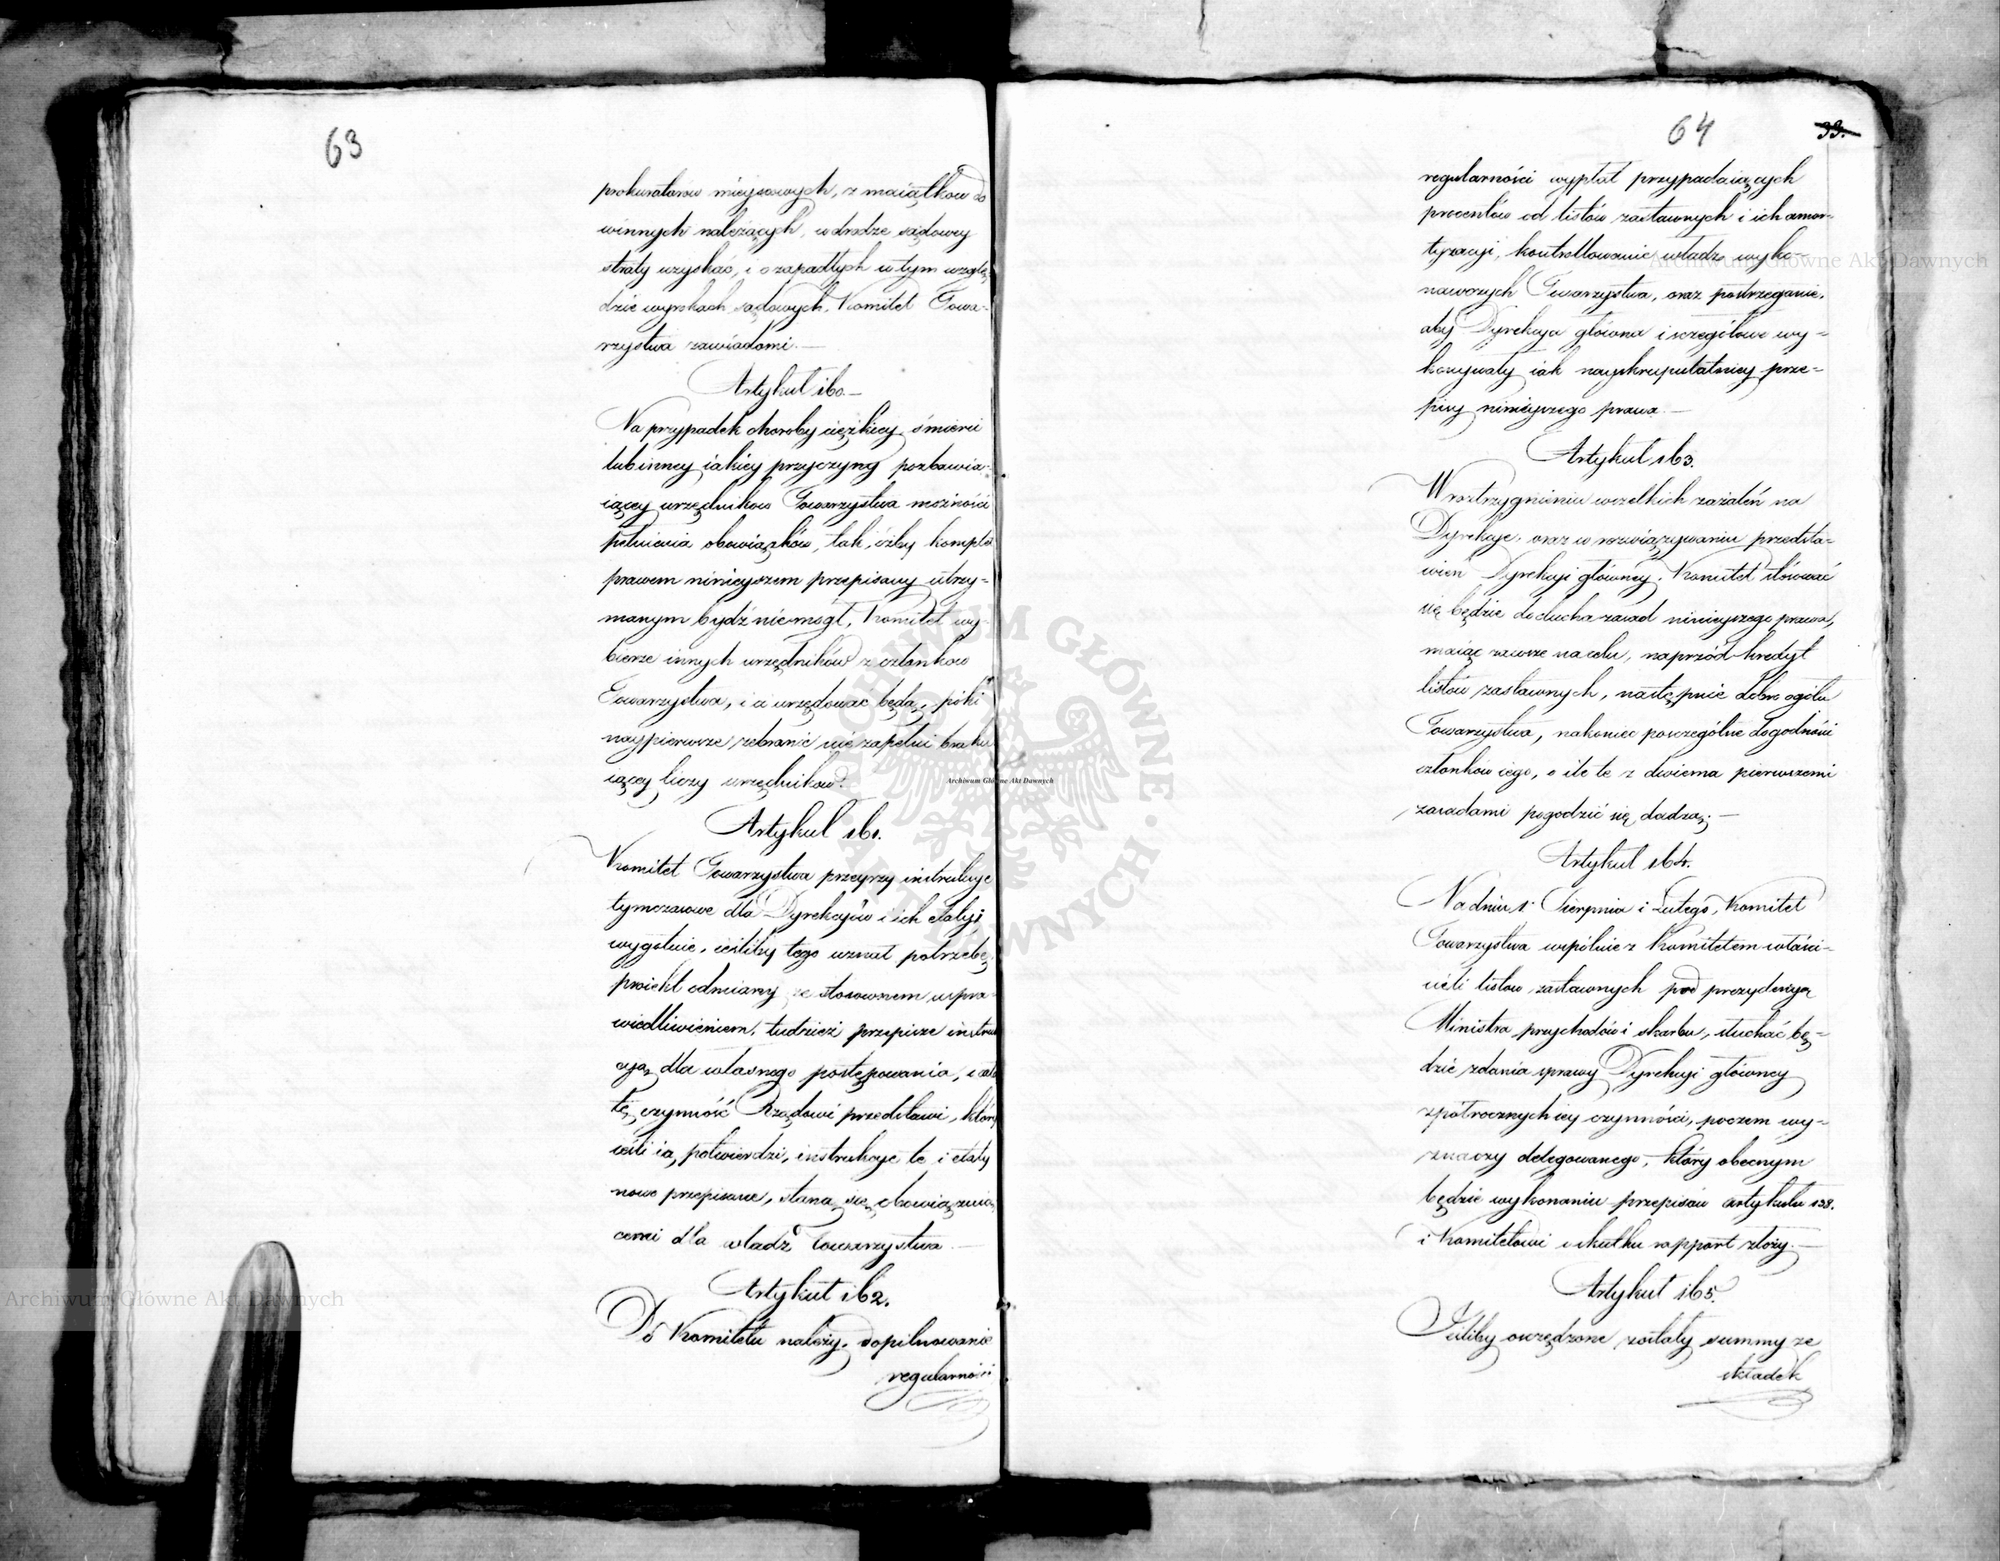 63
prokuratorów mieyscowych, z maiątków do
winnych należących, w drodze sądowey
straty uzyskać, i o zapadłych w tym wzglę-
dzie wyrokach sądowych, Komitet Towa-
rzystwa zawiadomi.—
Artykuł 160.—
Na przypadek choroby ciężkiey, śmierci
lub inney iakiey przyczyny pozbawia-
iącey urzędników Towarzystwa możności
pełnienia obowiązków, tak, iżby komplet
prawem ninieyszem przepisany utrzy-
manym bydź nie mógł, Komitet wy-
bierze innych urzędników z członków
Towarzystwa, i ci urzędować będą, póki
naypierwsze zebranie nie zapełni braku
iącey liczy urzędników.
Artykuł 161.
Komitet Towarzystwa przeyrzy instrukcye
tymczasowe dla Dyrekcyów i ich etaty,
wygotuie, ieśliby tego uznał potrzebę,
proiekt odmiany ze stosownem uspra-
wiedliwieniem, tudzież przepisze instruk
cyą dla własnego postępowania, i całą
tę czynność Rządowi przedstawi, który
ieśli ią potwierdzi, instrukcye te i etaty
nowo przepisane, staną się obowiązuią
cemi dla władz Towarzystwa.—
Artykuł 162.
Do Komitetu należy, dopilnowanie
regularności
64
33.
regularności wypłat przypadaiących
procentów od listów zastawnych i ich amor-
tyzacyi, kontrollowanie władz wyko-
nawczych Towarzystwa, oraz postrzeganie,
aby Dyrekcya główna i szczegółowe wy-
konywały iak nayskrupulatniey prze-
pisy ninieyszego prawa.—
Artykuł 163.
W rostrzygnieniu wszelkich zażaleń na
Dyrekcye, oraz w rozwiązywaniu przedsta-
wień Dyrekcyi główney, Komitet stosować
się będzie do ducha zasad ninieyszego prawa,
maiąc zawsze na celu, naprzód kredyt
listów zastawnych, następnie dobro ogółu
Towarzystwa, nakoniec poszczególne dogodności
członków iego, o ile te z dwiema pierwszemi
zasadami pogodzić się dadzą.—
Artykuł 164.
Na dniu 1. Sierpnia i Lutego, Komitet
Towarzystwa wspólnie z Komitetem właści-
cieli listów zastawnych pod prezydencyą
Ministra przychodów i skarbu, słuchać bę-
dzie zdania sprawy Dyrekcyi główney
z półrocznych iey czynności, poczem wy-
znaczy delegowanego, który obecnym
będzie wykonaniu przepisów artykułu 138.
i Komitetowi o skutku rapport złoży.—
Artykuł 165.
Jeśliby oszczędzone zostały summy ze
składek
Archiwum Główne Akt Dawnych
Archiwum Główne Akt Dawnych
Archiwum Główne Akt Dawnych
ARCHIWUM GŁÓWNE AKT DAWNYCH